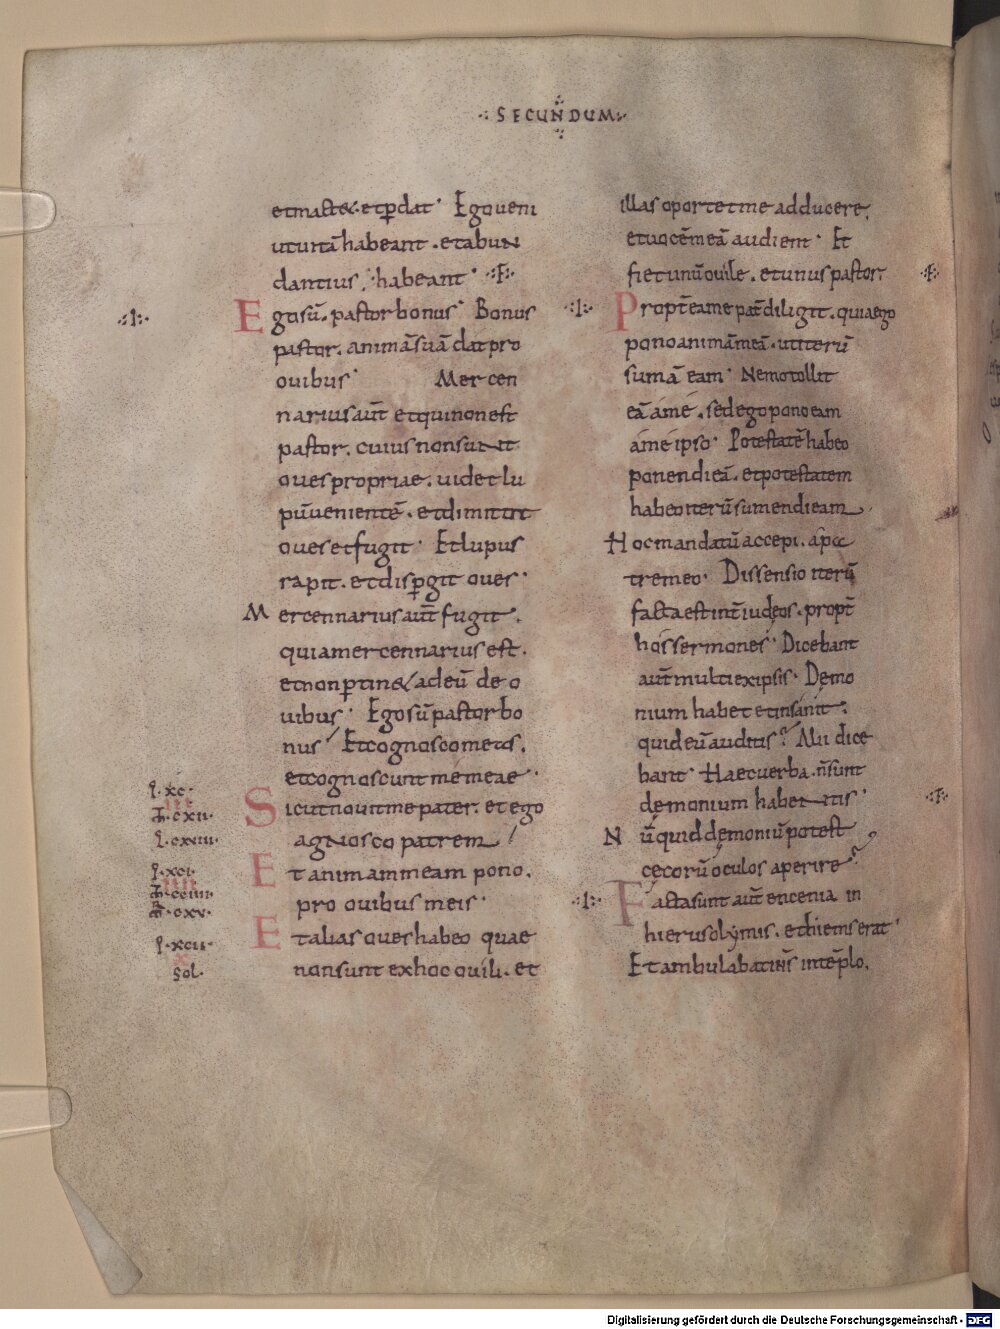 SECUNDUM
et mactet & perdat. Ego veni
ut uitā habeant. et abun
dantius habeant. F
·I· Ego sū pastor bonus. Bonus
pastor. animā suā dat pro
ouibus. Mercen
narius aūt et qui non est
pastor. cuius non sunt
oues propriae. uidet lu
pū uenientē. et dimittit
oues et fugit. Et lupus
rapit. et dispgit oues.
Mercennarius aūt fugit.
quia mercennarius est.
et non ptin& ad eū de o
uibus. Ego sū pastor bo
nus. Et cognosco meas.
et cognoscunt me meae.
Sicut nouit me pater. et ego
agnosco patrem
Et animam meam pono.
pro ouibus meis.
Et alias oues habeo quae
non sunt ex hoc ouili. et
I·xc·
III
·cxii·
l·cxviii·
I·xci·
IIII
·cxv·
I·xcii·
X
Sol.
illas oportet me adducere.
et uocē meā audient. Et
fiet unū ouile. et unus pastor. F
·I· Propt̄ea me pat̄ diligit. quia ego
pono animā meā. ut iterū
sumā eam. Nemo tollit
eā a me. sed ego pono eam
a me ipso. Potestatē habeo
ponendi eā. et potestatem
habeo iterū sumendi eam
Hoc mandatū accepi. a pa
tre meo. Dissensio iterū
facta est int̄ iudęos. propt̄
hos sermones. Dicebant
aūt multi ex ipsis. Dęmo
nium habet et insanit.
quid eū auditis? Alii dice
bant. Haec uerba. ñ sunt
dęmonium habentis. F
Nūquid dęmoniū potest
cęcorū oculos aperire?
·I· Facta sunt aūt encenia in
hierusolymis. et hiems erat.
Et ambulabat ihs̄ in tēplo.
Digitalisierung gefördert durch die Deutsche Forschungsgemeinschaft - DFG